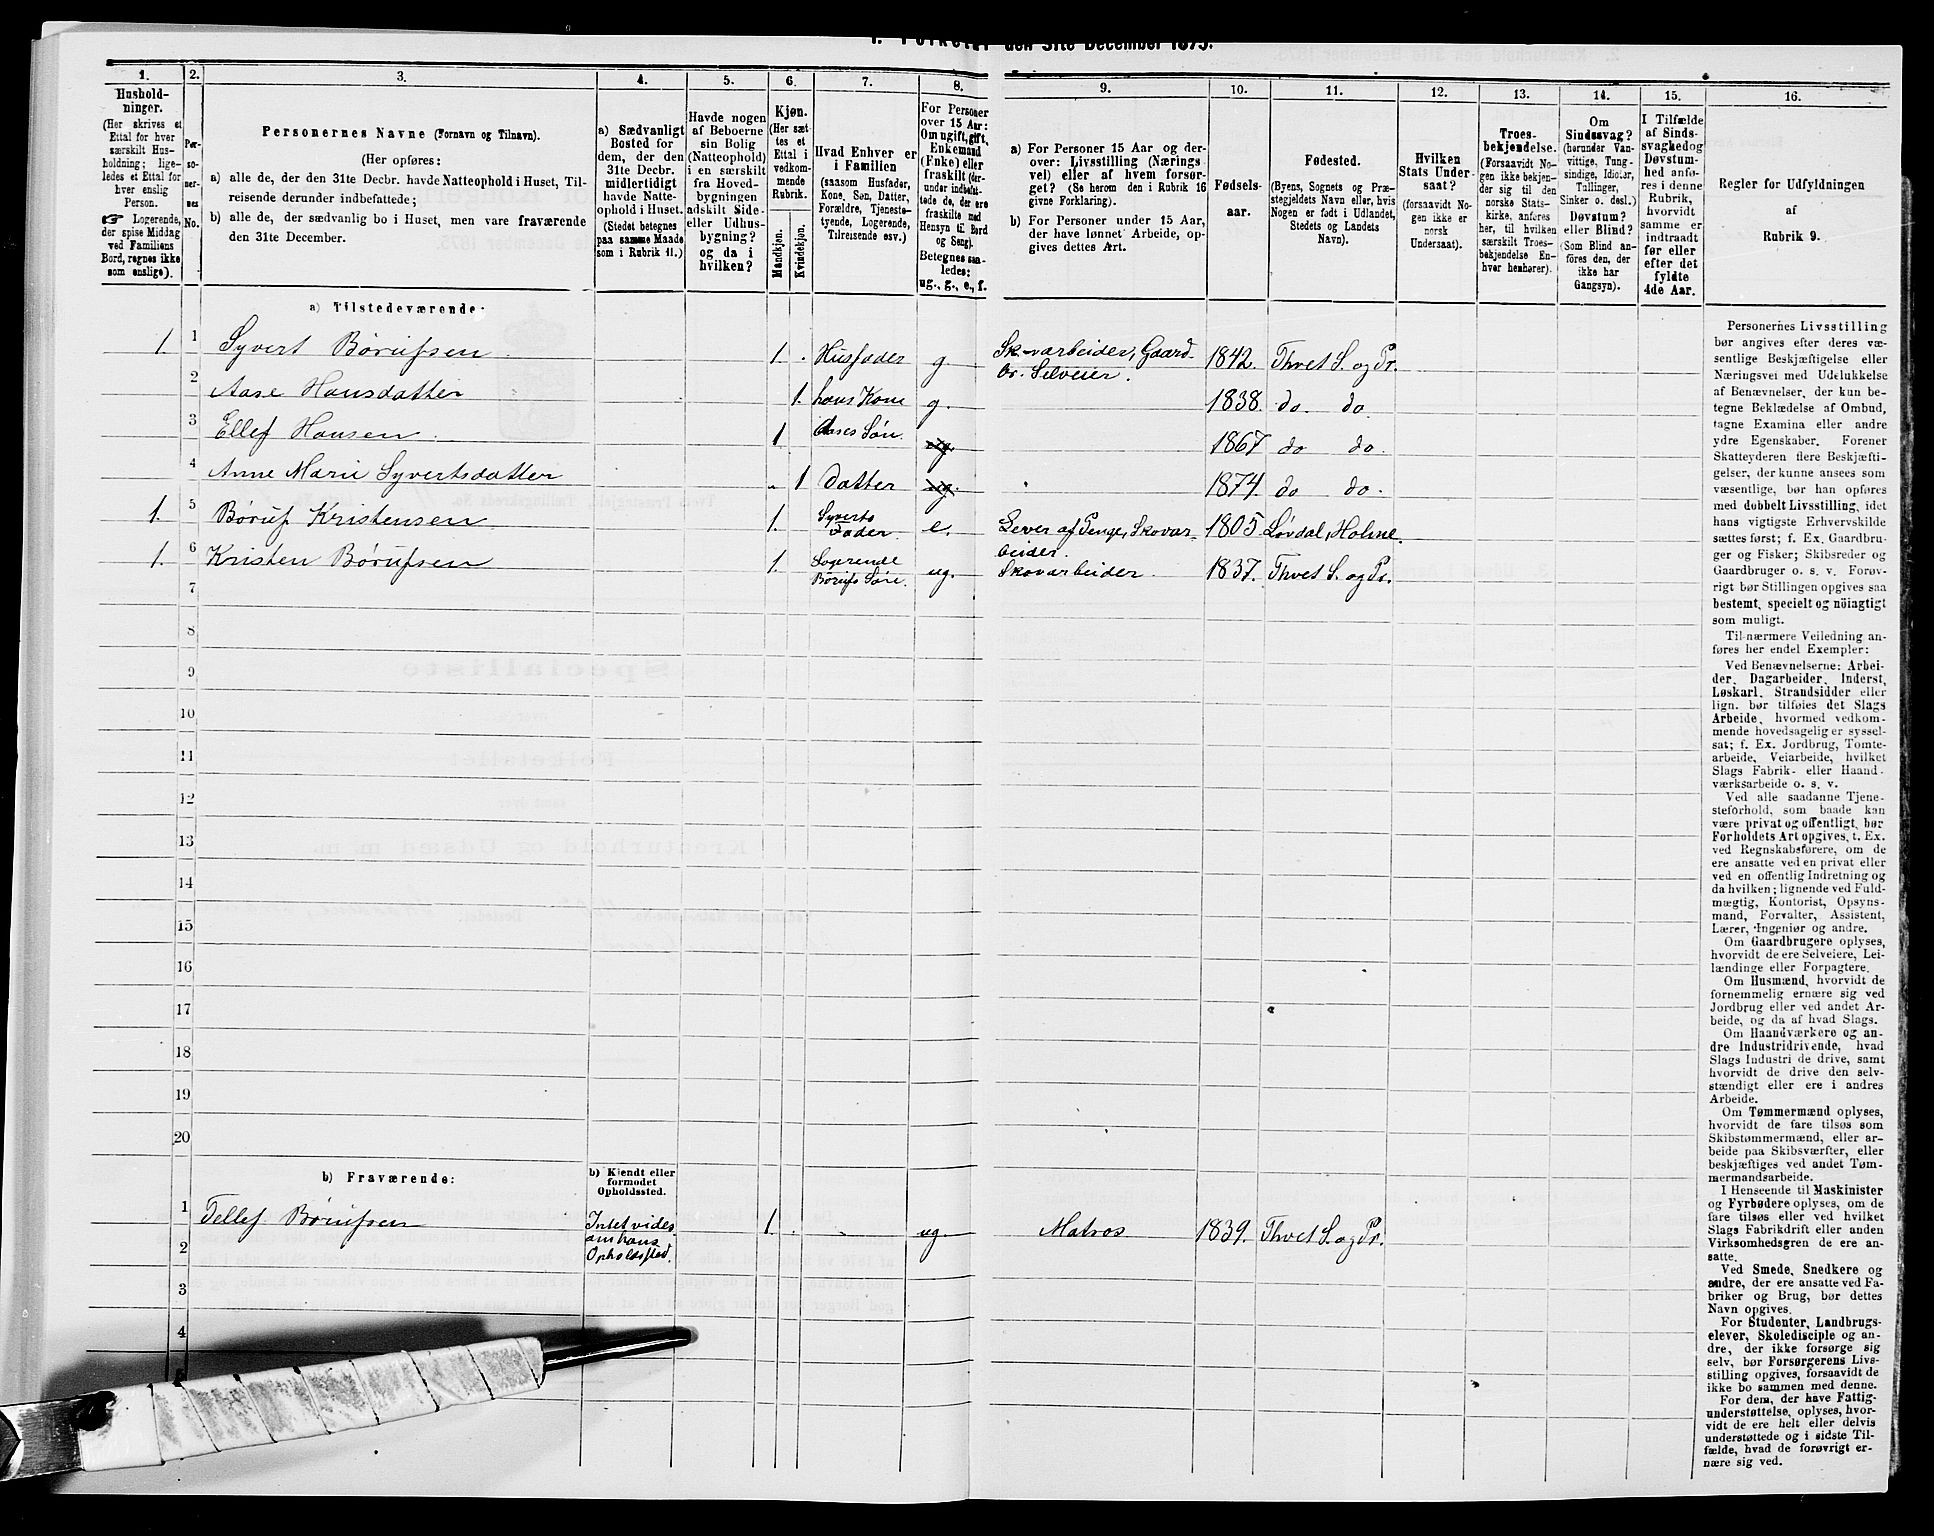 1. Folketal den 31te December 1875.
1.
Hushold-
ninger.
(Her skrives et
Ettal for hver
særskilt Hus-
holdning; lige-
ledes et Ettal for
hver enslig
Person.
☞ Logerende,
der spise Middag
ved Familiens
Bord, regnes ikke
som enslige).
2.
Per-
so-
ner-
nes
No.
3.
Personernes Navne (Fornavn og Tilnavn).
(Her opføres:
a) alle de, der den 31te Decbr. havde Natteophold i Huset, Til-
reisende derunder indbefattede;
b) alle de, der sædvanlig bo i Huset, men vare fraværende
den 31te December.
4.
a) Sædvanligt
Bosted for
dem, der den
31te Decbr.
midlertidigt
havde Natte-
ophold i Huset.
(Stedet betegnes
paa samme Maade
som i Rubrik 11.)
5.
Havde nogen
af Beboerne
sin Bolig
(Natteophold)
i en særskilt
fra Hoved-
bygningen
adskilt Side-
eller Udhus-
bygning?
og da i
hvilken?
6.
Kjøn.
(Her sæt-
tes et
Ettal i
vedkom-
mende
Rubrik.
Mandkjøn.
Kvindekjøn.
7.
Hvad Enhver er
i Familien
(saasom Husfader,
Kone, Søn, Datter,
Forældre, Tjeneste-
tyende, Logerende,
Tilreisende osv.)
8.
For Personer
over 15 Aar:
Om ugift, gift,
Enkemand
(Enke) eller
fraskilt (der-
under indbefat-
tede de, der ere
fraskilte med
Hensyn til Bord
og Seng).
Betegnes saa-
ledes:
ug., g., e., f.
9.
a) For Personer 15 Aar og der-
over: Livsstilling (Nærings
vei) eller af hvem forsør-
get? (Se herom den i Rubrik 16
givne Forklaring).
b) For Personer under 15 Aar,
der have lønnet Arbeide, op-
gives dettes Art.
10.
Fødsels-
aar.
11.
Fødested.
(Byens, Sognets og Præ-
stegjeldets Navn eller, hvis
Nogen er født i Udlandet,
Stedets og Landets
Navn).
12.
Hvilken
Stats Under-
saat?
(forsaavidt No-
gen ikke er
norsk
Undersaat).
13.
Troes-
bekjendelse.
(Forsaavidt No-
gen ikke bekjen-
der sig til den
norske Stats-
kirke, anføres
her, til hvilken
særskilt Troes-
bekjendelse En-
hver henhører).
14.
Om
Sindssvag?
(herunder Van-
vittige, Tung-
sindige, Idioter,
Tullinger,
Sinker o. desl.)
Døvstum?
eller Blind?
(Som Blind an-
føres den, der
ikke har
Gangsyn).
15.
I Tilfælde
af Sinds-
svaghed og
Døvstum-
hed anfø-
res i denne
Rubrik,
hvorvidt
samme er
indtraadt
før eller
efter det
fyldte
4de Aar.
16.
Regler for Udfyldningen
af
Rubrik 9.
a) Tilstedeværende:
1. 1 Syvert Børufsen 1. Husfader g Skovarbeider, Gaard- 1842. Thvet S. og Pr.
br. Selveier.
2 Aase Hansdatter 1. hans Kone g. 1838. do. do.
3 Ellef Hansen. 1 Aases Søn. ug. 1867 do do.
4 Anne Marie Syvertsdatter 1 Datter ug. 1874. do do.
1. 5 Børuf Kristensen 1. Syverts Fader. e. Lever af Penge, Skovar- 1805 Løvdal, Holme.
beider.
1. 6 Kristen Børufsen 1. Logerende Børufs Søn. ug. Skovarbeider. 1837. Thvet S. og Pr.
7
8
9
10
11
12
13
14
15
16
17
18
19
20
b) Fraværende:
b) Kjendt eller
formodet
Opholdssted.
1 Tellef Børufsen Intet vides 1. ug. Matros 1839. Thvet S. og Pr.
om hans
2 Opholdssted.
3
4
5
Personernes Livsstilling
bør angives efter deres væ-
sentlige Beskjæftigelse eller
Næringsvei med Udelukkelse
af Benævnelser, der kun be-
tegne Beklædelse af Ombud,
tagne Examina eller andre
ydre Egenskaber. Forener
Skatteyderen flere Beskjæfti-
gelser, der kunne ansees som
væsentlige, bør han opføres
med dobbelt Livsstilling, idet
hans vigtigste Erhvervskilde
sættes først; f. Ex. Gaardbru-
ger og Fisker; Skibsreder og
Gaardbruger o. s. v. Forøv-
rigt bør Stillingen opgives saa
bestemt, specielt og nøiagtigt
som muligt.
Til nærmere Veiledning an-
føres her endel Exempler:
Ved Benævnelserne: Arbei-
der, Dagarbeider, Inderst,
Løskarl, Strandsidder eller
lign. bør tilføies det Slags
Arbeide, hvormed vedkom-
mende hovedsagelig er syssel-
sat; f. Ex. Jordbrug, Tomte-
arbeide, Veiarbeide, hvilket
Slags Fabrik- eller Haand-
værksarbeide o. s. v.
Ved alle saadanne Tjene-
steforhold, som baade kan
være privat og offentligt, bør
Forholdets Art opgives, t. Ex.
ved Regnskabsførere, om de
ere ansatte ved en privat eller
ved en offentlig Indretning og
da hvilken; lignende ved Fuld-
mægtig, Kontorist, Opsyns-
mand, Forvalter, Assistent,
Lærer, Ingeniør og andre.
Om Gaardbrugere oplyses,
hvorvidt de ere Selveiere, Lei-
lændinge eller Forpagtere.
Om Husmænd, hvorvidt de
fornemmelig ernære sig ved
Jordbrug eller ved andet Ar-
beide, og da af hvad Slags.
Om Haandværkere og an-
dre Industridrivende, hvad
Slags Industri de drive, samt
hvorvidt de drive den selv-
stændigt eller ere i andres
Arbeide.
Om Tømmermænd oplyses,
hvorvidt de fare tilsøs som
Skibstømmermænd, eller ar-
beide paa Skibsværfter, eller
beskjæftiges ved andet Tøm-
mermandsarbeide.
I Henseende til Maskinister
og Fyrbødere oplyses, om de
fare tilsøs eller ved hvilket
Slags Fabrikdrift eller anden
Virksomhedsgren de ere an-
satte.
Ved Smede, Snedkere og
andre, der ere ansatte ved Fa-
briker og Brug, bør dettes
Navn opgives.
For Studenter, Landbrugs-
elever, Skoledisciple og an-
dre, der ikke forsørge sig
selv, bør Forsørgerens Livs-
stilling opgives, forsaavidt de
ikke bo sammen med denne.
For dem, der have Fattig-
understøttelse, oplyses, hvor-
vidt de ere helt eller delvis
understøttede og i sidste Til-
fælde, hvad de forøvrigt er-
nære sig ved.